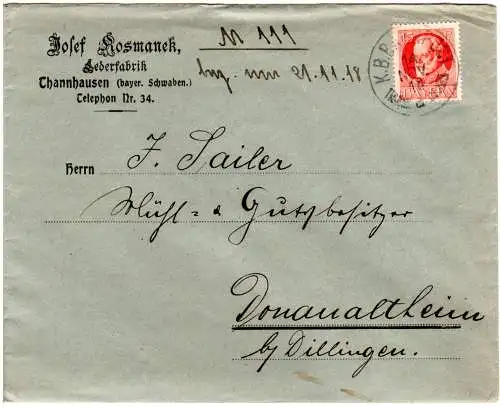 Josef Kosmanek,
Lederfabrik
Thannhausen (bayer. Schwaben.)
Telephon Nr. 34.
N 111
bez. am 21.11.18
K.B.B
BAYERN
Herrn J. Sailer
Mühl- & Gutsbesitzer
Donaualtheim
b/ Dillingen.